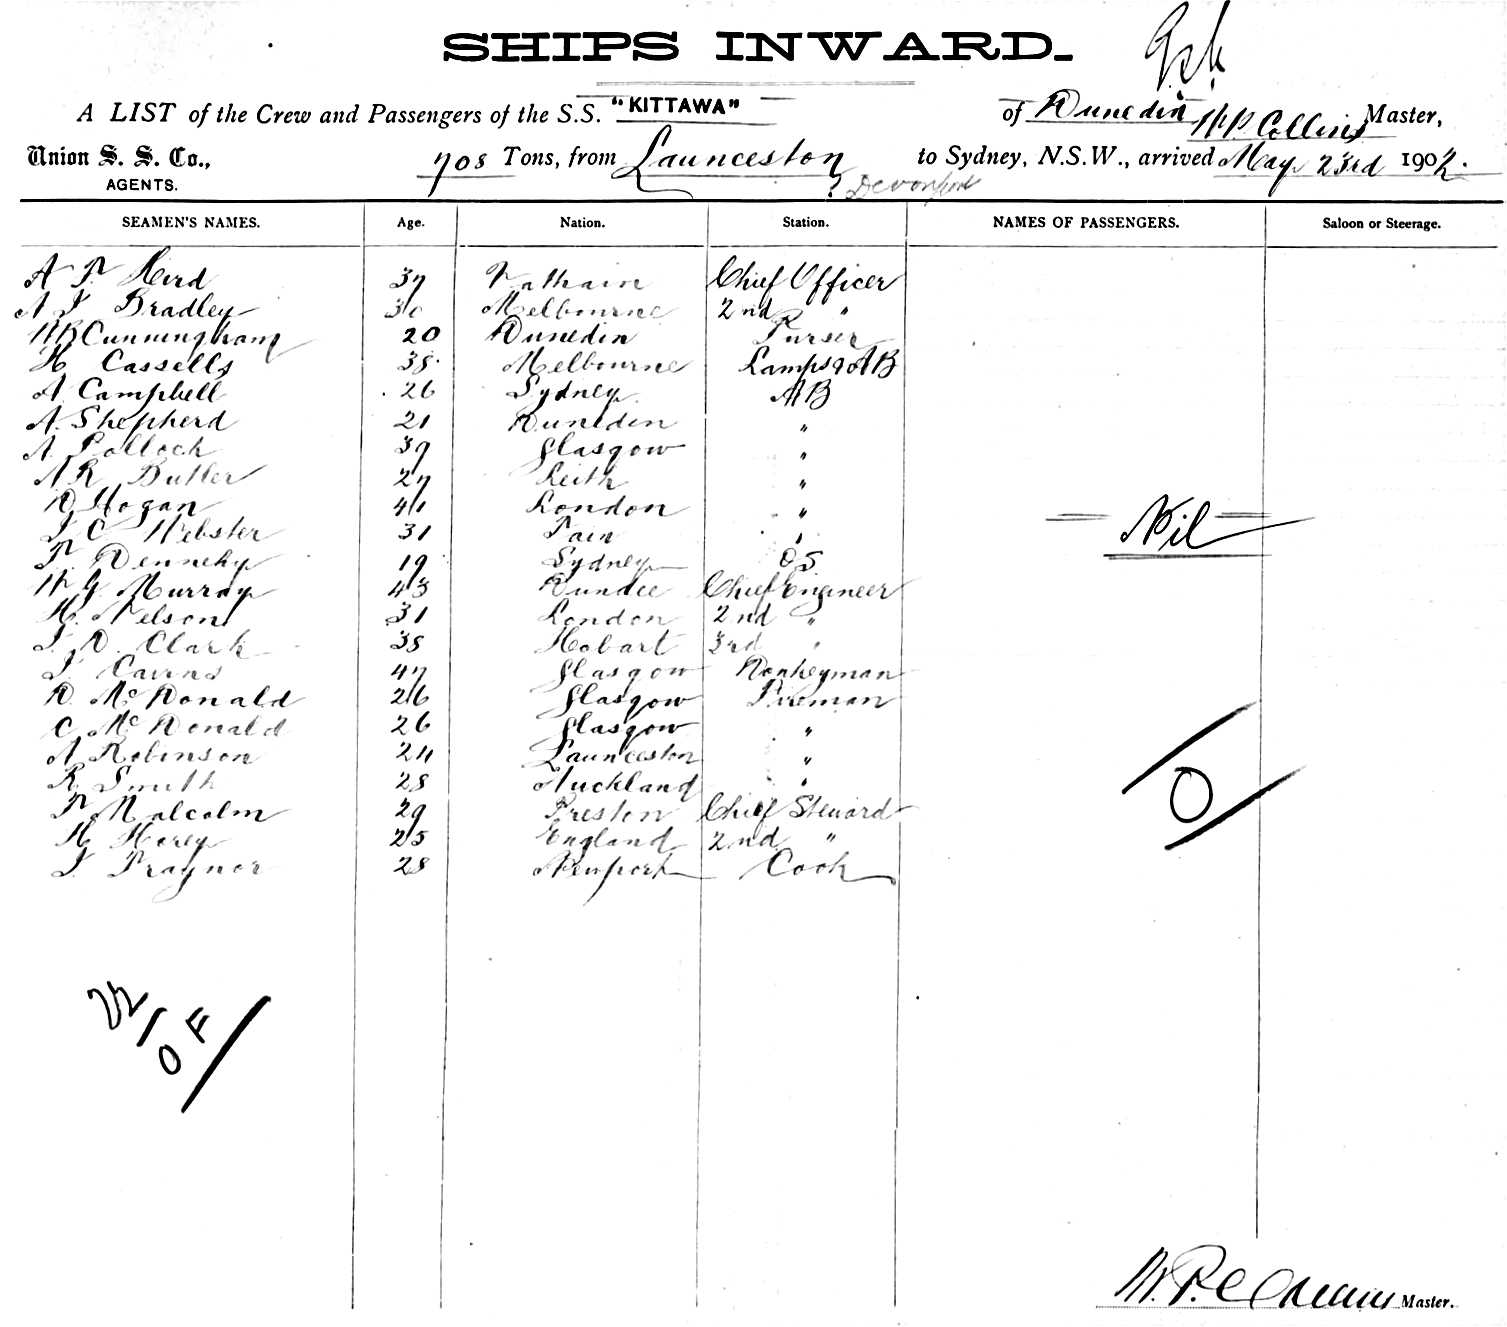 SHIPS INWARD.
A LIST of the Crew and Passengers of the S.S. "KITTAWA" of Dunedin W P Collins Master,
Union S. S. Co., 708 Tons, from Launceston to Sydney, N.S.W., arrived May 23rd 1902.
AGENTS. Devonport
SEAMEN'S NAMES. Age. Nation. Station. NAMES OF PASSENGERS. Saloon or Steerage.
A F Herd 37 Chief Officer
A J Bradley 30 Melbourne 2nd "
W B Cunningham 20 Dunedin Purser
H Cassells 38 Melbourne Lamps & AB
A Campbell 26 Sydney AB
A. Shepherd 21 Dunedin "
A. Pollock 39 Glasgow "
A R Butler 27 Leith "
D Hogan 41 London "
J C Webster 31 Tain "
Nil
T. Dennehy 19 Sydney OS
W G Murray 43 Dundee Chief Engineer
H. Nelson 31 London 2nd "
J. D. Clark 35 Hobart 3rd "
J. Cairns 47 Glasgow Donkeyman
D. McDonald 26 Glasgow Fireman
C McDonald 26 Glasgow "
A Robinson 24 Launceston "
R Smith 28 Auckland "
0
F Malcolm 29 Preston Chief Steward
H Horey 25 England 2nd "
J. Traynor 28 Newport Cook
22
0 F
W. P. Collins Master.